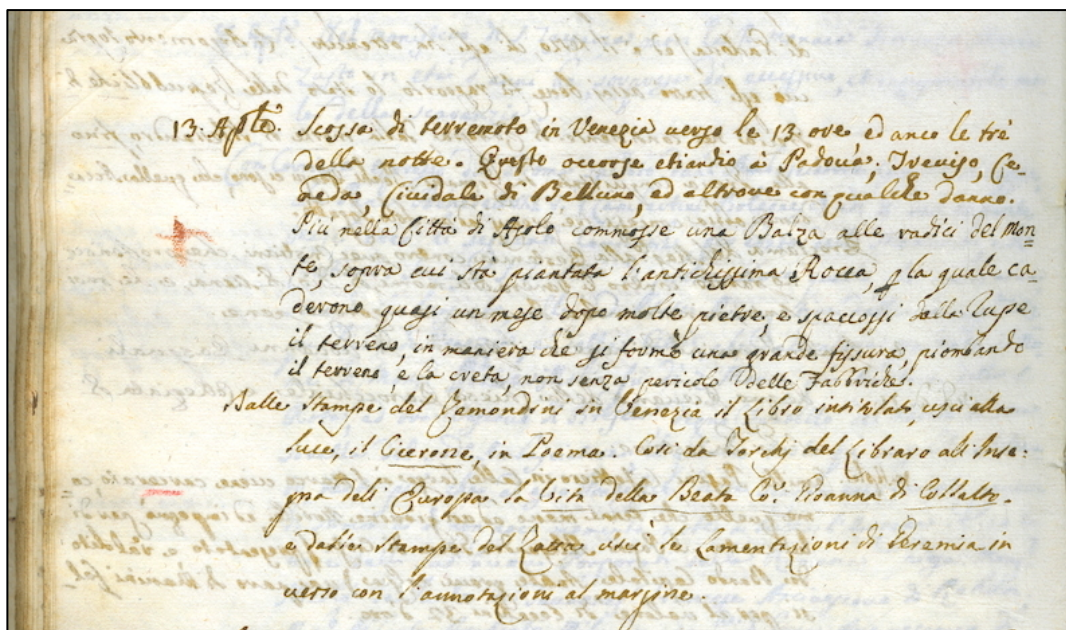 13. Aple. Scossa di terremoto in Venezia verso le 13 ore ed anco le trè
della notte. Questo occorse etiandio à Padova, Treviso, Ce-
neda, Cividale di Belluno, ed altrove con qualche danno.
Più nella Città di Asolo commosse una Balza alle radici del Mon-
te, sopra cui sta piantata l'antichissima Rocca, la quale ca-
derono quasi un mese dopo molte pietre, e spaccossi dalla Rupe
il terreno, in maniera che si formò una grande fissura, piombando
il terreno, e la creta, non senza pericolo delle Fabbriche.
Dalle stampe del Remondini in Venezia il Libro intitolato, uscì alla
luce, il Cicerone, in Poema. Così da Torchj del Libraro all'Inse-
gna dell'Europa la Vita della Beata Giovanna di Collalto.
e dalle stampe del Zatta uscì le Lamentazioni di Geremia in
verso con l'annotazioni al margine.